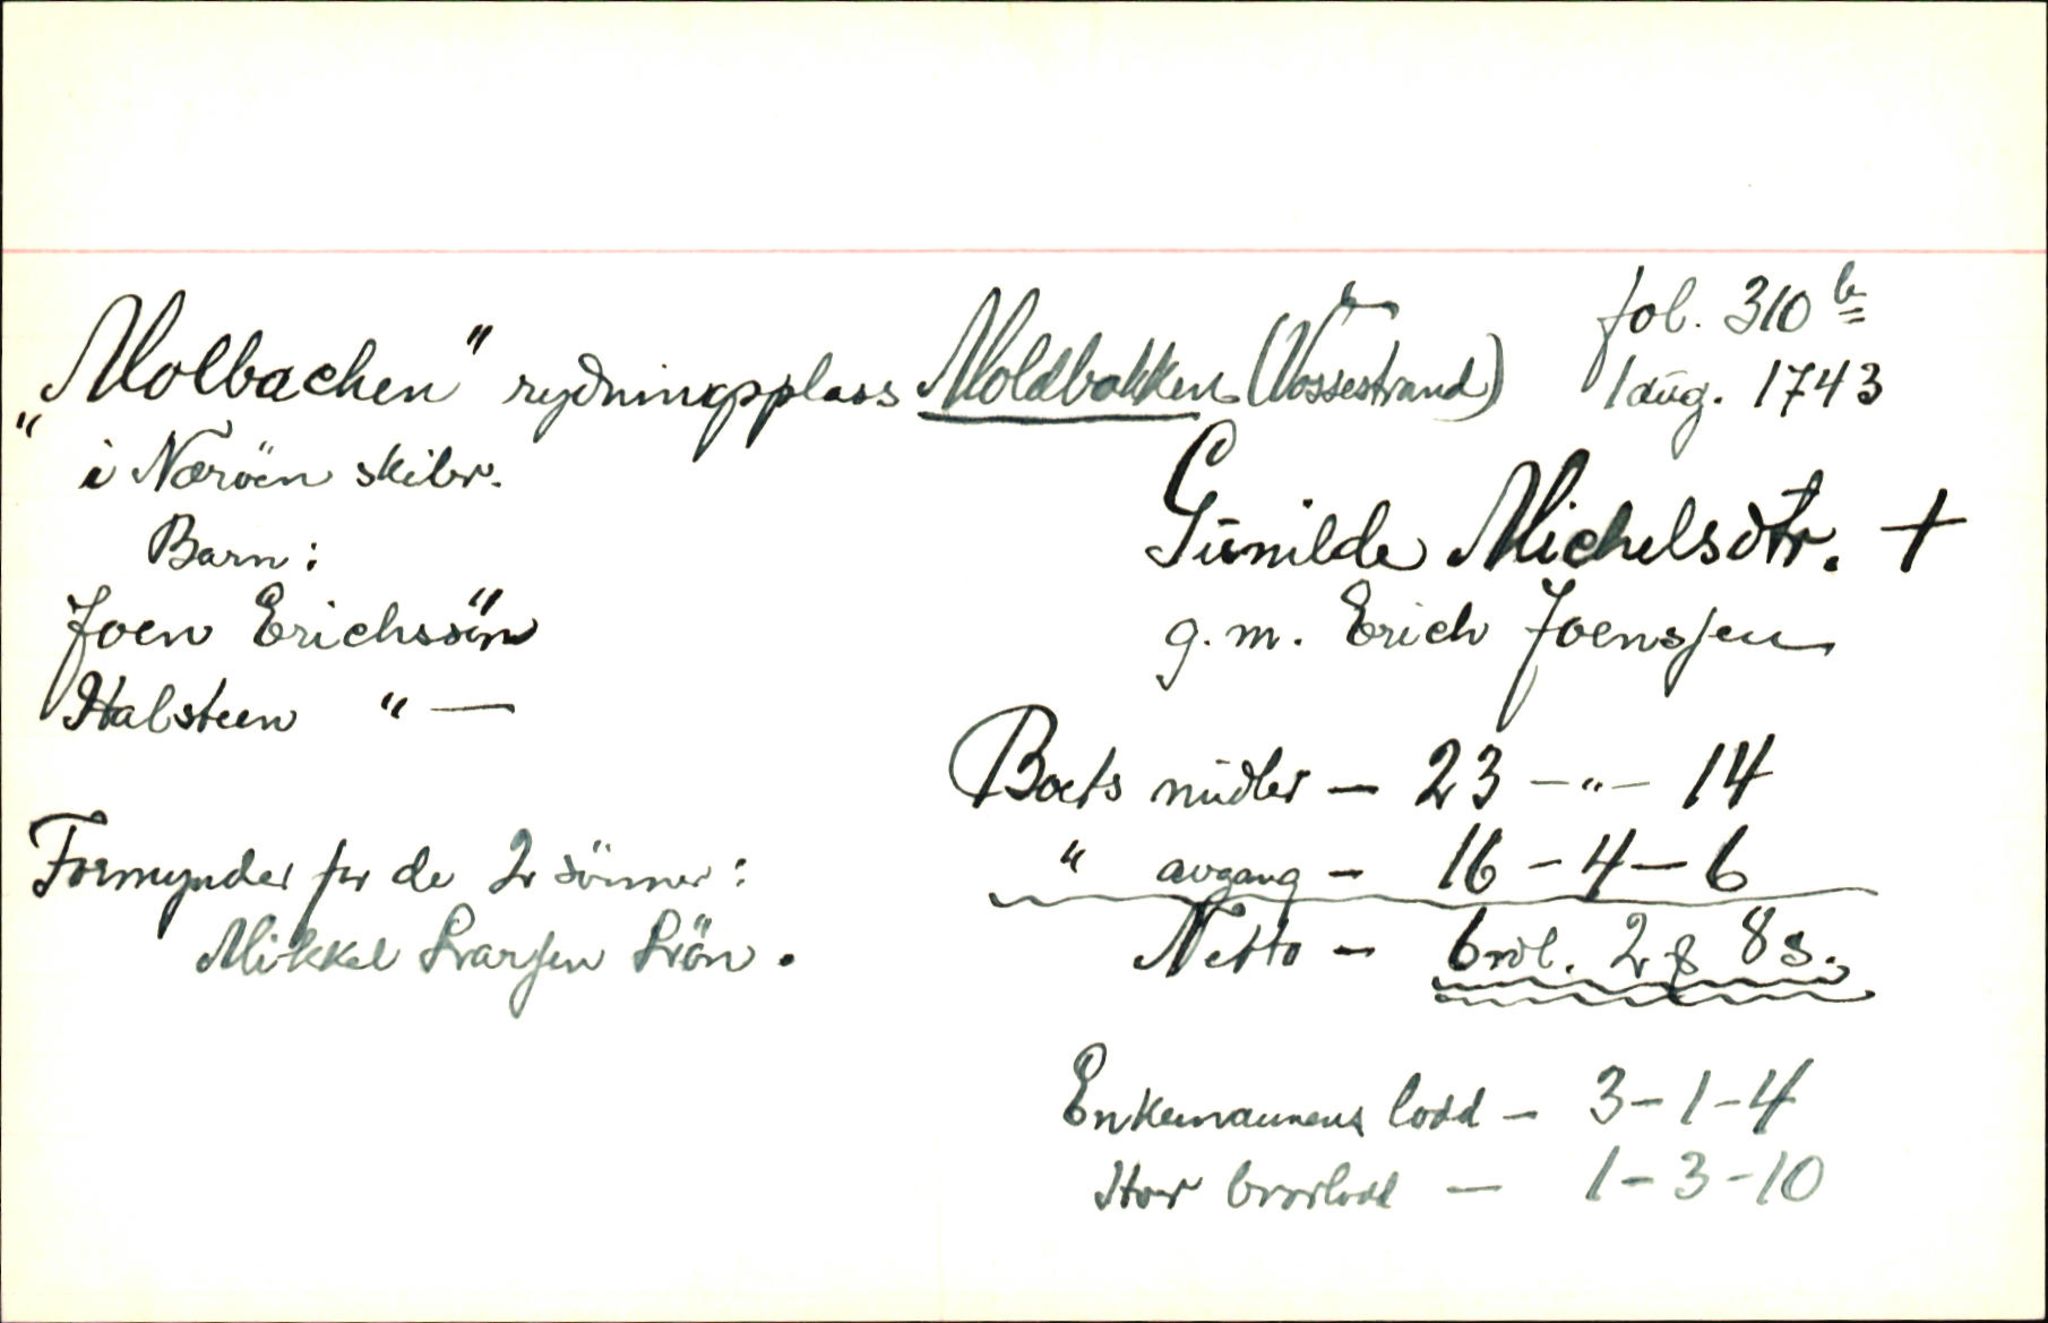 fol. 310 b
„Molbachen" rydningsplass Moldbakken (Vossestrand) 1 aug. 1743
i Næröen skibr.
Gunilde Michelsdtr. +
Barn:
g. m. Erich Joenssen
Joen Erichssön
Halsteen " —
Boets midler — 23 — " — 14
" avgang — 16 — 4 — 6
Formynder for de 2 sönner:
Netto — 6 rdl. 2 ƺ 8 s.
Mikkel Ivarsen
Enkemannens lodd — 3 - 1 - 4
Hver brorlodd — 1 - 3 - 10